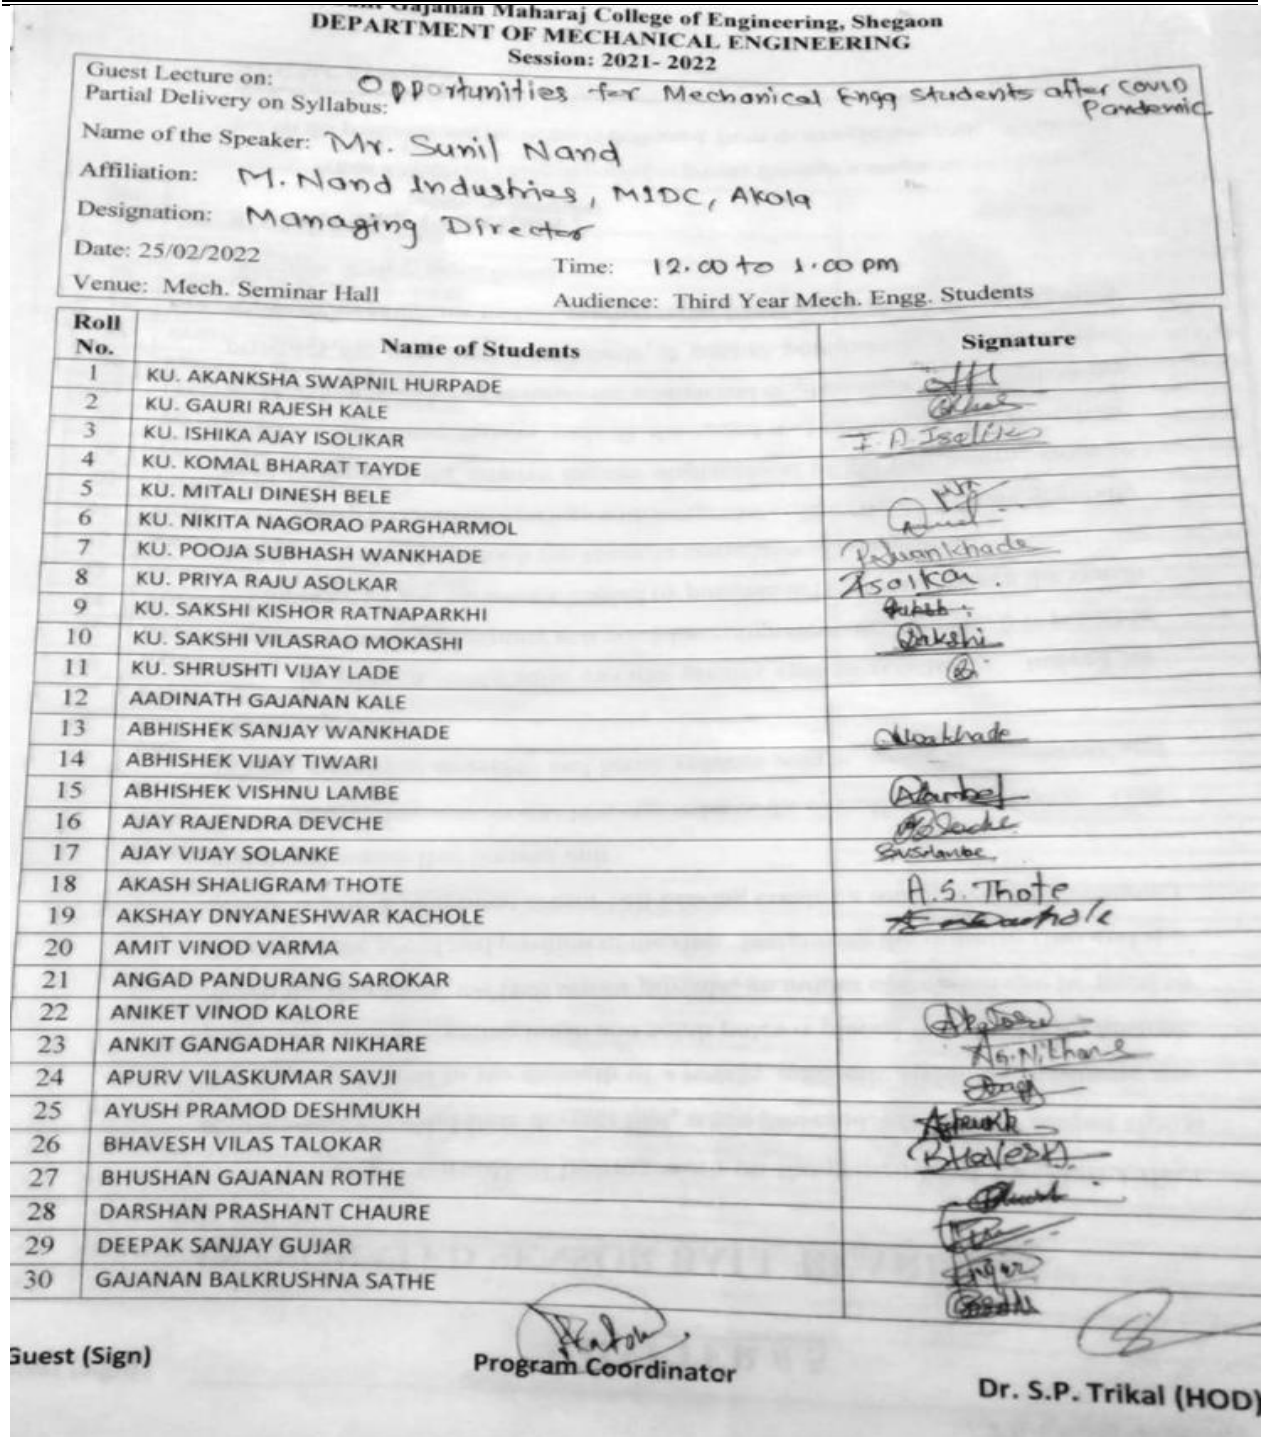 Gajanan Maharaj College of Engineering, Shegaon
DEPARTMENT OF MECHANICAL ENGINEERING
Session: 2021- 2022
Guest Lecture on: Opportunities for Mechanical Engg Students after COVID
Partial Delivery on Syllabus: Pandemic
Name of the Speaker: Mr. Sunil Nand
Affiliation: M. Nand Industries, MIDC, Akola
Designation: Managing Director
Date: 25/02/2022 Time: 12.00 to 1.00 pm
Venue: Mech. Seminar Hall Audience: Third Year Mech. Engg. Students
Roll No. Name of Students Signature
1 KU. AKANKSHA SWAPNIL HURPADE
2 KU. GAURI RAJESH KALE
3 KU. ISHIKA AJAY ISOLIKAR I. A. Isolikar
4 KU. KOMAL BHARAT TAYDE
5 KU. MITALI DINESH BELE
6 KU. NIKITA NAGORAO PARGHARMOL
7 KU. POOJA SUBHASH WANKHADE P.S.Wankhade
8 KU. PRIYA RAJU ASOLKAR Asolkar
9 KU. SAKSHI KISHOR RATNAPARKHI
10 KU. SAKSHI VILASRAO MOKASHI Sakshi
11 KU. SHRUSHTI VIJAY LADE
12 AADINATH GAJANAN KALE
13 ABHISHEK SANJAY WANKHADE
14 ABHISHEK VIJAY TIWARI
15 ABHISHEK VISHNU LAMBE
16 AJAY RAJENDRA DEVCHE
17 AJAY VIJAY SOLANKE
18 AKASH SHALIGRAM THOTE A.S. Thote
19 AKSHAY DNYANESHWAR KACHOLE
20 AMIT VINOD VARMA
21 ANGAD PANDURANG SAROKAR
22 ANIKET VINOD KALORE
23 ANKIT GANGADHAR NIKHARE AG.Nikhare
24 APURV VILASKUMAR SAVJI
25 AYUSH PRAMOD DESHMUKH
26 BHAVESH VILAS TALOKAR BHAVESH
27 BHUSHAN GAJANAN ROTHE
28 DARSHAN PRASHANT CHAURE
29 DEEPAK SANJAY GUJAR
30 GAJANAN BALKRUSHNA SATHE
Guest (Sign) Program Coordinator Dr. S.P. Trikal (HOD)